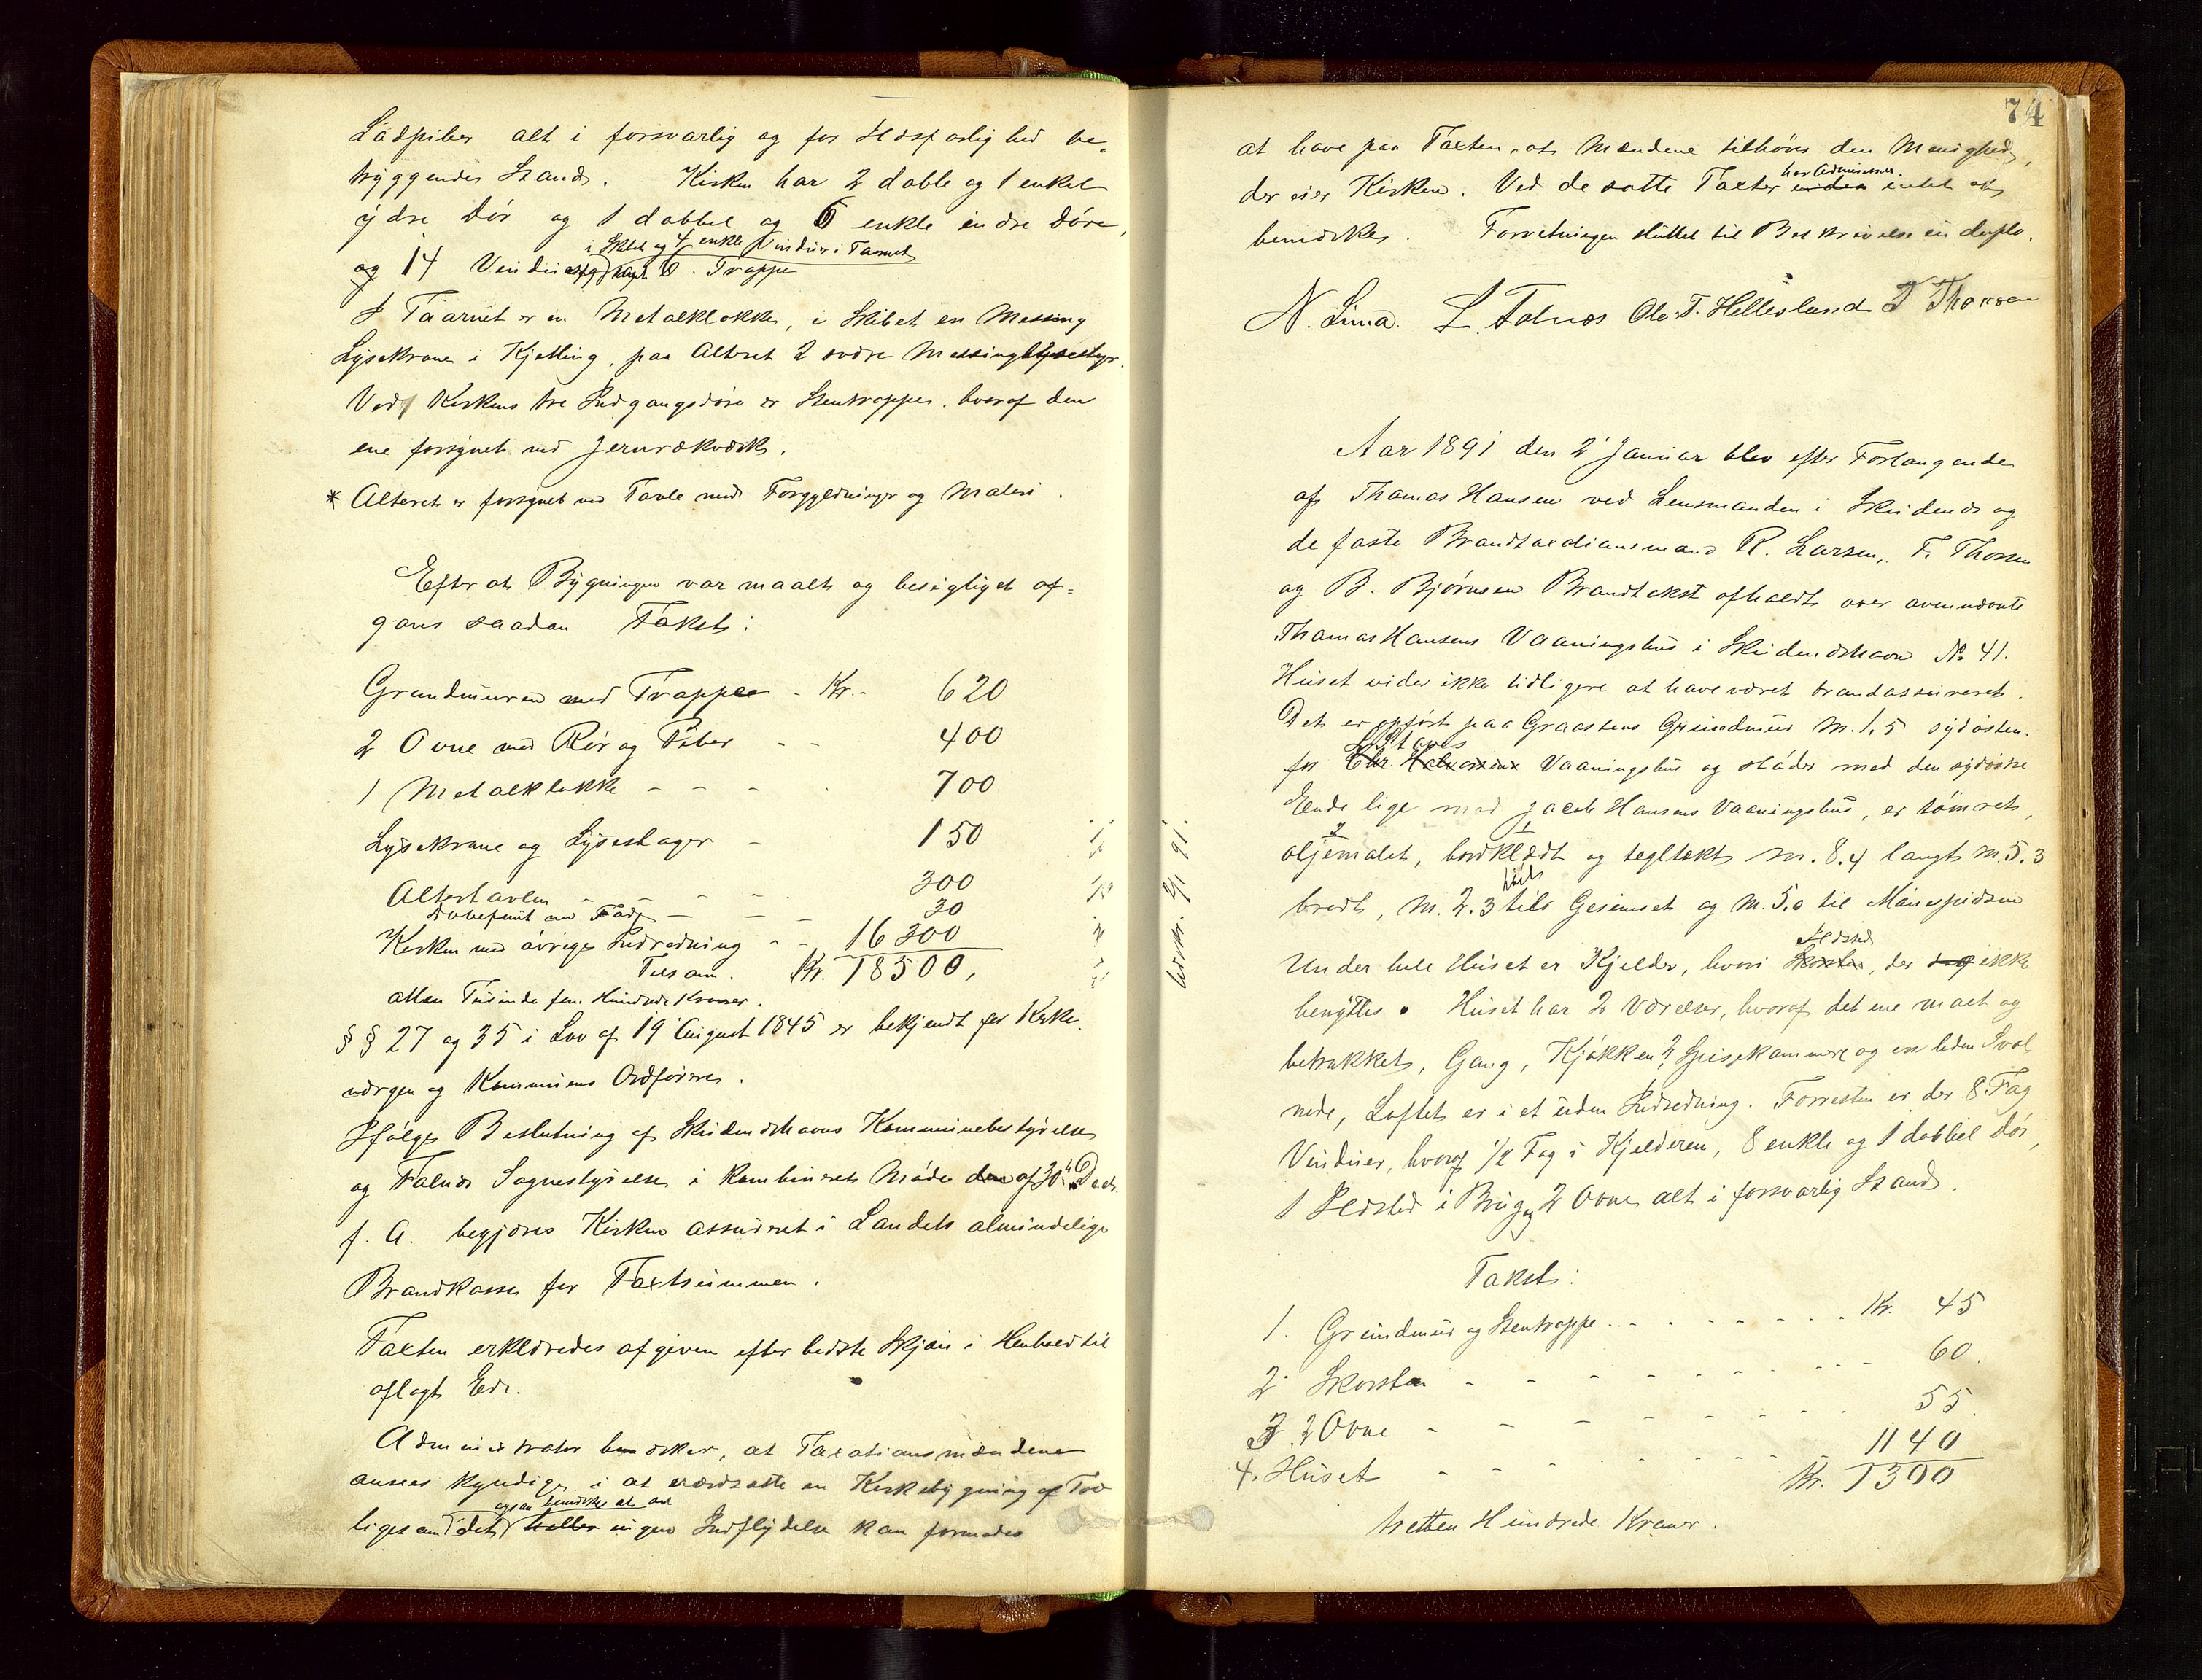 Lådpiber alt i forsvarlig og for Ildsfarlighed be-
tryggendes Stand. Kirken har 2 doble og 1 enkel
ydre Dør og 1 dobbel og 6 enkle indre Døre,
i Skibet og 4 enkle Vinduer i Taarnet
og 14 Vinduer Trappe
I Taarnet er en Metalklokke, i Skibet en Messing
Lysekrone i Kjetting, paa Alteret 2 svære Messinglysestager.
Ved Kirkens tre Indgangsdøre er Stentrapper, hvoraf den
ene forsynet med Jernrækværk.
* Alteret er forsynet med Tavle med Forgyldninger og Maleri.
Efter at Bygningen var maalt og besigtiget af-
gaves saadan Takst:
Grundmuren med Trapper - Kr. - 620
2 Ovne med Rør og Piber - - 400
1 Metalklokke - - - 700
Lysekrone og Lysestager - 150
Altertavlen - - - - 300
Døbefunt med Fad - - - 30
Kirken med øvrige Indredning - - 16 300
Tilsam. Kr. 18500,
atten Tusinde fem Hundrede Kroner.
§ § 27 og 35 i Lov af 19 August 1845 er bekjendt for Kirke-
værgen og Kommunens Ordførere.
Ifølge Beslutning af Skudeneshavns Kommunebestyrelse
og Falnæs Sognestyrelse i kombineret Møde den af 30 Decbr.
f. A. begjæres Kirken assureret i Landets almindelige
Brandkasse for Taxtsummen.
Taxten erklæredes afgiven efter bedste Skjøn i Henhold til
aflagt Ed.
Administrator bemærker, at Taxationsmændene
ansees kyndige i at værdsætte en Kirkebygning af Træ
ogsaa bemærkes at der
ligesom det heller ingen Indflydelse kan formodes
74
at have paa Taxten, at Mændene tilhører den Menighed,
har Administr.
der eier Kirken. Ved de satte Taxter inden intet at
bemærke. Forretningen sluttet til Beskrivelse in duplo.
N. Lima. L. Falnæs Ole T. Hellesland T Thorsen
Aar 1891 den 2 Januar blev efter Forlangende
af Thomas Hansen ved Lensmanden i Skudenes og
de faste Brandtaxtionsmænd R. Larsen, T. Thorsen
og B. Bjørnsen Brandtakst afholdt over ovennævnte
Thomas Hansens Vaaningshus i Skudeneshavn No 41.
Huset vides ikke tidligere at have været brandassureret.
Det er opført paa Graastens Grundmur M. 1,5 sydøsten-
for Chr. Halvorsens Vaaningshus og støder med den sydøstre
Ende lige mod Jacob Hansens Vaaningshus, er tømret,
2 1
oljemalet, bordklædt og tegltækt M. 8.4 langt M. 5.3
høit
bredt, M. 2.3 til Gesimset og M. 5.0 til Mønespidsen
Ildsted
Under hele Huset er Kjelder, hvori Skorsten, der dog ikke
benyttes. Huset har 2 Værelser, hvoraf det ene malt og
betrukket, Gang, Kjøkken, 2 Spisekammere og en liden Sval
nede, Loftet er i et uden Indredning. Forresten er der 8 Fag
Vinduer, hvoraf 1/2 Fag i Kjelderen, 8 enkle og 1 dobbel Dør,
1 Ildsted i Brug og 2 Ovne alt i forsvarlig Stand.
Takst:
1. Grundmur og Stentrappe - - - - Kr. 45
2. Skorsten - - - - - 60.
3. 2 Ovne - - - - - 55
4. Huset - - - - - 1140
Kr. 1300
tretten Hundrede Kroner.